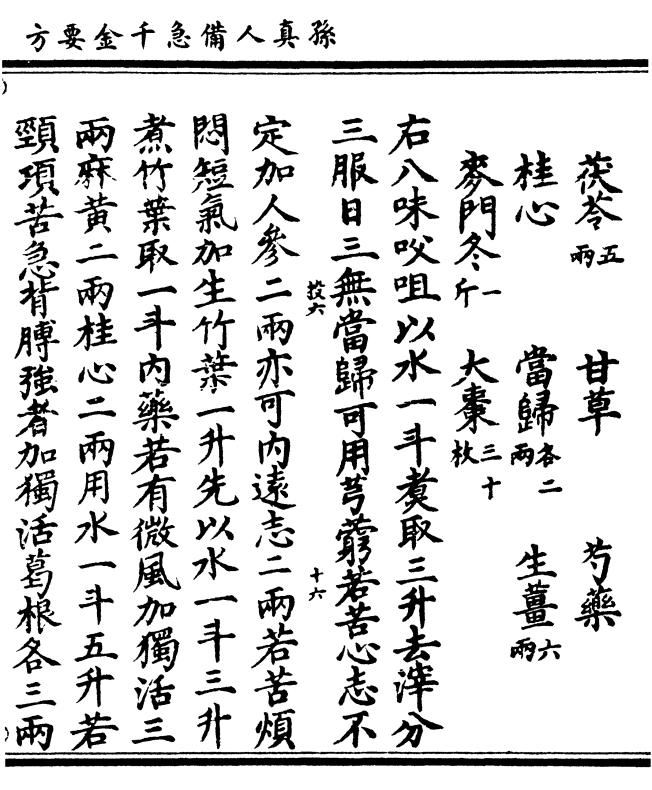 孫真人備急千金要方
茯苓五兩 甘草 芍藥
桂心 當歸各二兩 生薑六兩
麥門冬一斤 大棗三十枚
右八味㕮咀以水一斗煑取三升去滓分
三服日三無當歸可用芎藭若苦心志不
投六 十六
定加人參二兩亦可內遠志二兩若苦煩
悶短氣加生竹葉一升先以水一斗三升
煮竹葉取一斗內藥若有微風加獨活三
兩麻黃二兩桂心二兩用水一斗五升若
頸項苦急背膊強者加獨活葛根各三兩